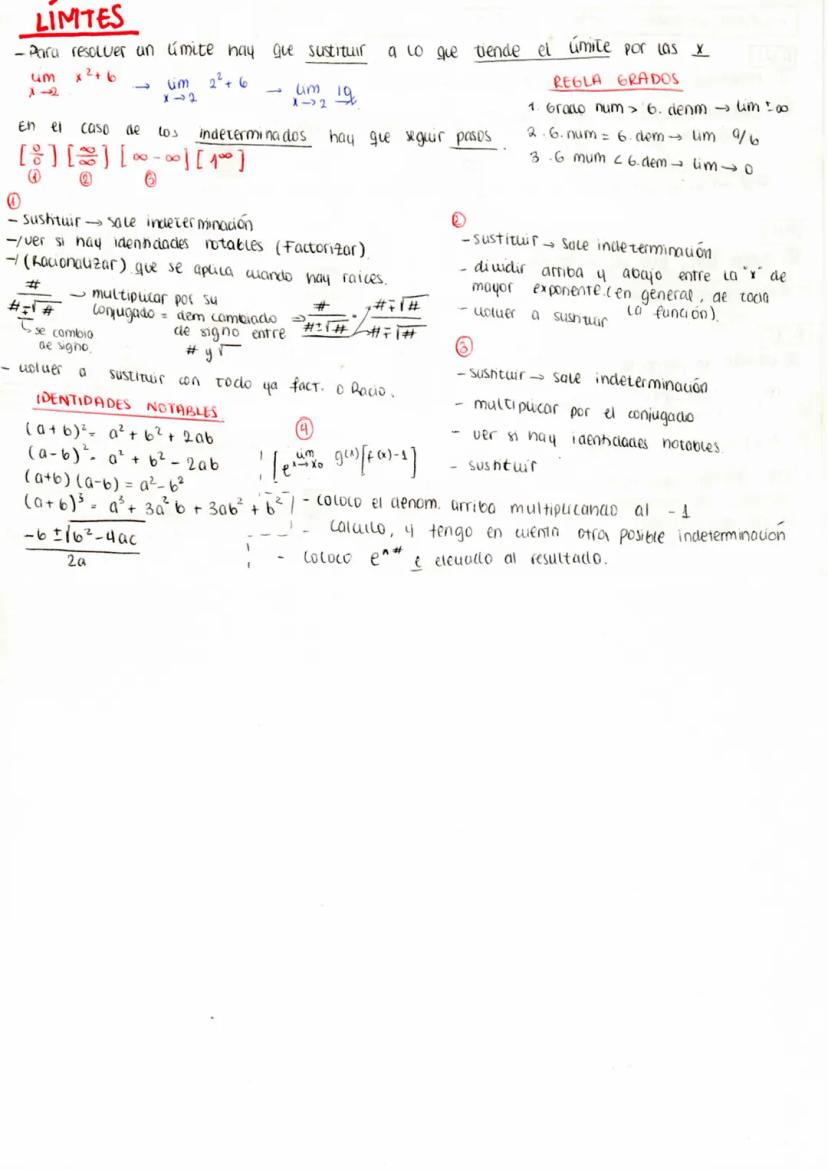 LÍMTES
- Para resolver un límite hay que sustituir a lo que tiende el límite por las x
lim x→2 x² + 6 → lim x→2 2² + 6 → lim x→2 10
REGLA GRADOS
1. Grado num > G. denm → lim ±∞
2. G. num = G. dem → lim a/b
3. G mum < G. dem → lim → 0
En el caso de los indeterminados hay que seguir pasos.
[0/0] [∞/∞] [∞ - ∞] [1^∞]
① ② ③
①
- sustituir → sale indeterminación
-/ver si hay identidades notables (Factorizar)
-/ (Racionalizar) que se aplica cuando hay raíces.
# / #∓√# → multiplicar por su conjugado = dem cambiado de signo entre # y √ ⇒ # / #±√# · #∓√# / #∓√#
↳ se cambia de signo.
- volver a sustituir con todo ya fact. o Racio.
②
- sustituir → sale indeterminación
- dividir arriba y abajo entre la "x" de
mayor exponente (en general, de toda
la función).
- volver a sustituir
③
- sustituir → sale indeterminación
- multiplicar por el conjugado
- ver si hay identidades notables
- sustituir
IDENTIDADES NOTABLES
(a + b)² = a² + b² + 2ab
(a - b)² = a² + b² - 2ab
(a+b) (a-b) = a² - b²
(a + b)³ = a³ + 3a²b + 3ab² + b²
-b ± √b² - 4ac / 2a
④
[e^lim x→x₀ g(x) [f(x) - 1]]
- coloco el denom. arriba multiplicando al -1
- calculo, y tengo en cuenta otra posible indeterminación
- coloco e^# e elevado al resultado.